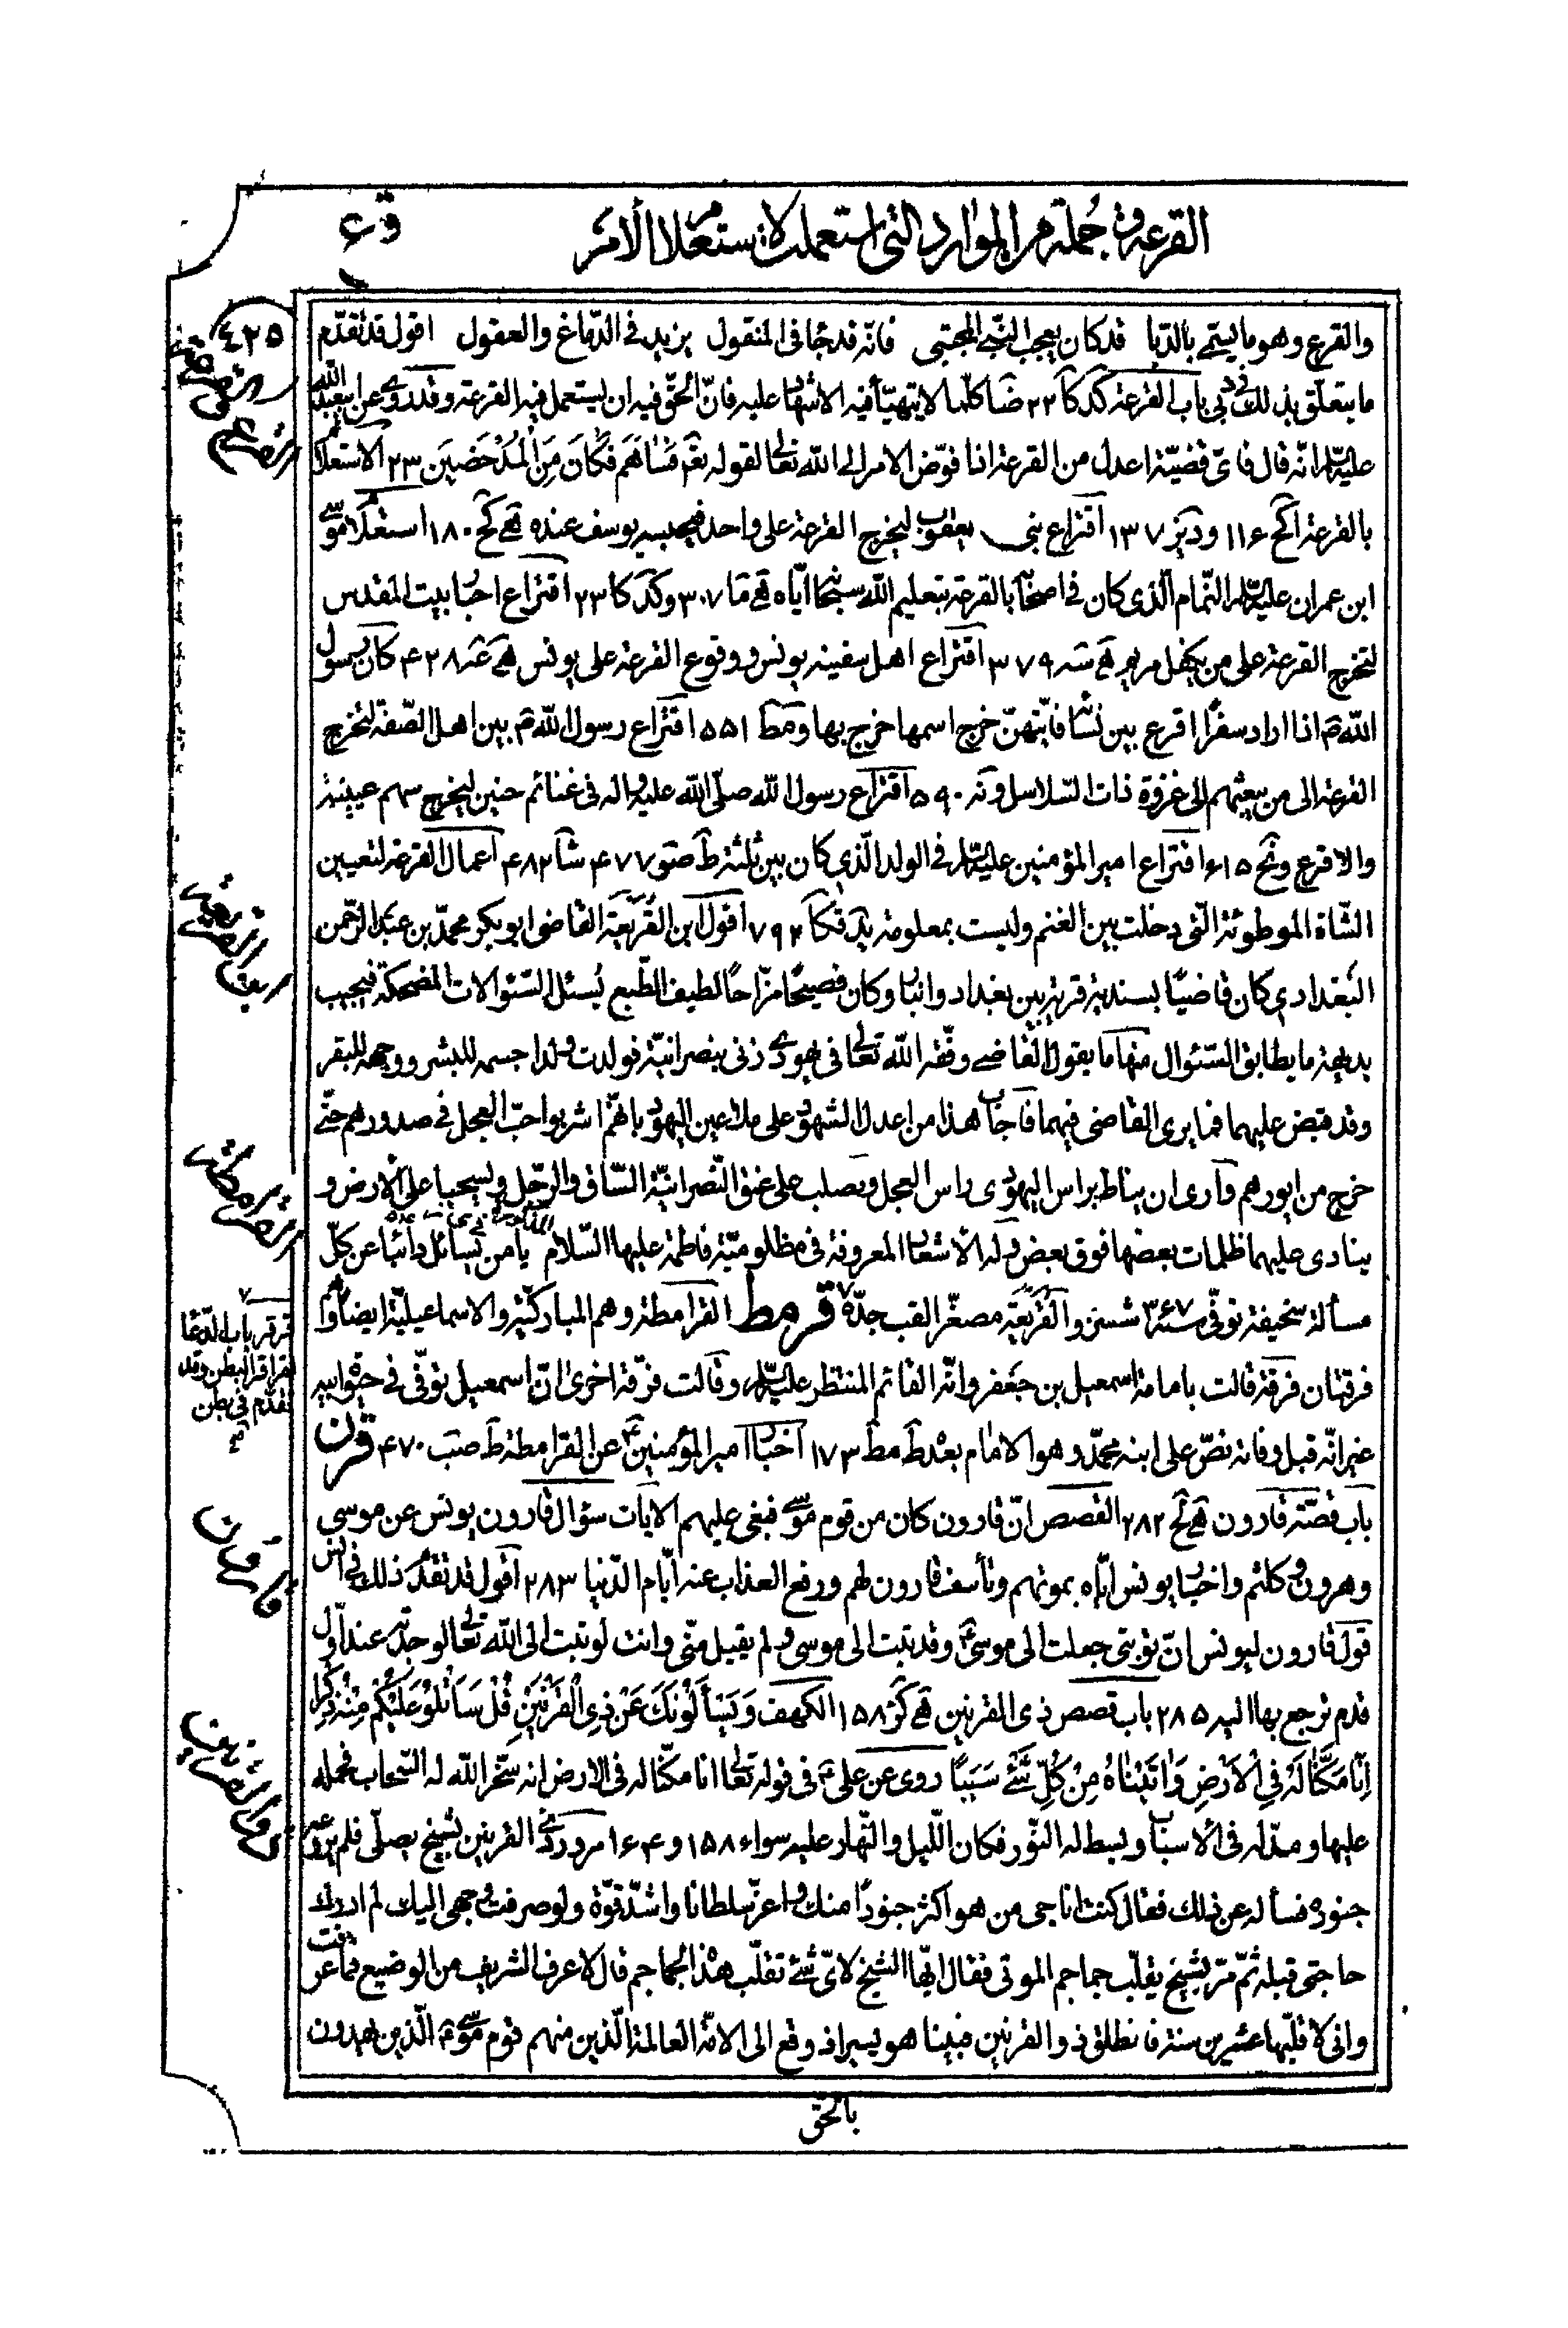 القرعة وجملة من الموارد التي استعملت لاستعلام الأمر
ق ع
٤٢٥
والقرع وهو ما يسمّى بالدّبا قد كان يعجب النّبيّ المجتبى فانّه قد جا في المنقول يزيد في الدّماغ والعقول اقول قد تقدّم
ما يتعلّق بذلك في دبى باب القرعة كد كا ٢٢ ضا كلّما لا يتهيّأ فيه الاشهاد عليه فانّ الحقّ فيه ان يستعمل فيه القرعة وقد روى عن ابيعبد الله
عليه السّلام انّه قال فايّ قضيّة اعدل من القرعة اذا فوّض الامر الى الله تعالى لقوله تعٰ فَسٰاهَمَ فَكٰانَ مِنَ الْمُدْحَضينَ ٢٣ الاستعلام
بالقرعة اكح ١١٦ ودير ١٣٧ اقتراع بني يعقوب ليخرج القرعة على واحد فيحبسه يوسف عنده هـ كح ١٨٠ استعلام موسى
ابن عمران عليه السّلام النّمام الّذي كان في اصحابه بالقرعة بتعليم الله سبحانه ايّاه هـ ما ٣٠٧ وكد كا ٢٣ اقتراع احبار بيت المقدس
لتخرج القرعة على من يكفل مريم هـ سه ٣٧٩ اقتراع اهل سفينة يونس ووقوع القرعة على يونس هـ عه ٤٢٨ كان رسول
الله ص اذا اراد سفرًا اقرع بين نسائه فايّتهنّ خرج اسمها خرج بها ومط ٥٥١ اقتراع رسول الله ص بين اهل الصّفة لتخرج
القرعة الى من يبعثهم الى غزوة ذات السّلاسل ونه ٥٩٠ اقتراع رسول الله صلّى الله عليه واله في غنائم حنين ليخرج سهم عيينة
والاقرع ونح ٦١٥ اقتراع امير المؤمنين عليه السّلام في الولد الّذي كان بين ثلثة ط صو ٤٧٧ شا ٤٨٢ اعمال القرعة لتعيين
الشّاة الموطوئة الّتي دخلت بين الغنم وليست بمعلومة يد قكا ٧٩٢ اقول ابن القُرَيعَة القاضى ابو بكر محمّد بن عبد الرّحمن
البغدادي كان قاضيًا بسنديّة قرية بين بغداد وانبار وكان فصيحًا مزّاحًا لطيف الطّبع يُسئل السّئوالات المضحكة فيجيب
بديهة ما يطابق السّئوال منها ما يقول القاضي وفّقه الله تعالى في يهوديّ زنى بنصرانيّة فولدت ولدا جسمه للبشر ووجهه للبقر
وقد قبض عليهما فما يرى القاضى فيهما فاجاب هذا من اعدل الشّهود على ملاعين اليهود بانّهم اشربوا حبّ العجل في صدورهم حتّى
خرج من ايورهم وارى ان يناط براس اليهودى راس العجل ويصلب على عنق النّصرانيّة السّاق والرّجل ويسحبا على الارض و
ينادى عليهما ظلمات بعضها فوق بعض وله الأشعار المعروفة في مظلوميّة فاطمة عليها السّلام يا من يسائل دائبا عن كلّ
مسألة سخيفة توفّى سنة ٣٦٧ شسز والقُرَيعَة مصغّر القب جدّه قرمط القرامطة وهم المباركيّة والاسماعيليّة ايضًا
فرقتان فرقة قالت بامامة اسمعيل بن جعفر وانّه القائم المنتظر عليه السّلام وقالت فرقة اخرى انّ اسمعيل توفّى في حيٰوة ابيه
غير انّه قبل وفاته نصّ على ابنه محمّد وهو الامٰام بعده ط مط ١٧٣ اخبار امير المؤمنين ع عن القرامطة ط صب ٤٧٠ قرن
باب قصّة قارون هـ لح ٢٨٢ القصص انّ قارون كان من قوم موسى فبغى عليهم الايات سؤال قارون يونس عن موسى
وهرون وكلثم واخبار يونس ايّاه بموتهم وتأسف قارون لهم ورفع العذاب عنه ايّام الدّنيا ٢٨٣ اقول قد تقدّم ذلك في انس
قول قارون ليونس انّ توبتى جعلت الى موسى ع وقد تبت الى موسى ولم يقبل منّى وانت لو تبت الى الله تعالى لوجدته عند اوّل
قدم ترجع بها اليه ٢٨٥ باب قصص ذى القرنين هـ كو ١٥٨ الكهف وَيَسْأَلُونَكَ عَنْ ذِى الْقَرْنَيْنِ قُلْ سَأَتْلُو عَلَيْكُمْ مِنْهُ ذِكْرًا
اِنّٰا مَكَّنّٰا لَهُ فِي الْاَرْضِ وَاٰتَيْنٰاهُ مِنْ كُلِّ شَيْءٍ سَبَبًا روى عن علي ع في قوله تعالى انا مكنّا له في الارض انه سخّر الله له السّحاب فحمله
عليها ومدّ له في الاسباب وبسط له النّور فكان اللّيل والنّهار عليه سواء ١٥٨ و ١٦٤ مرور ذى القرنين بشيخ يصلّى فلم يروّعه
جنوده فسأله عن ذلك فقال كنت اناجى من هو اكثر جنودًا منك واعزّ سلطانا واشدّ قوّة ولو صرفت وجهى اليك لم ادرك
حاجتى قبله ثمّ مرّ بشيخ يقلّب جماجم الموتى فقال ايّها الشيخ لايّ شئ تقلّب هذه الجماجم قال لاعرف الشريف من الوضيع فما عرفت
وانى لاقلّبها عشرين سنة فانطلق ذو القرنين فبينا هو يسير اذ وقع الى الامّة العالمة الّذين منهم قوم موسى ع الّذين يهدون
بالحقّ
قرقر باب الدّعا
لقراقر البطن وقد
تقدّم في بطن
قارون